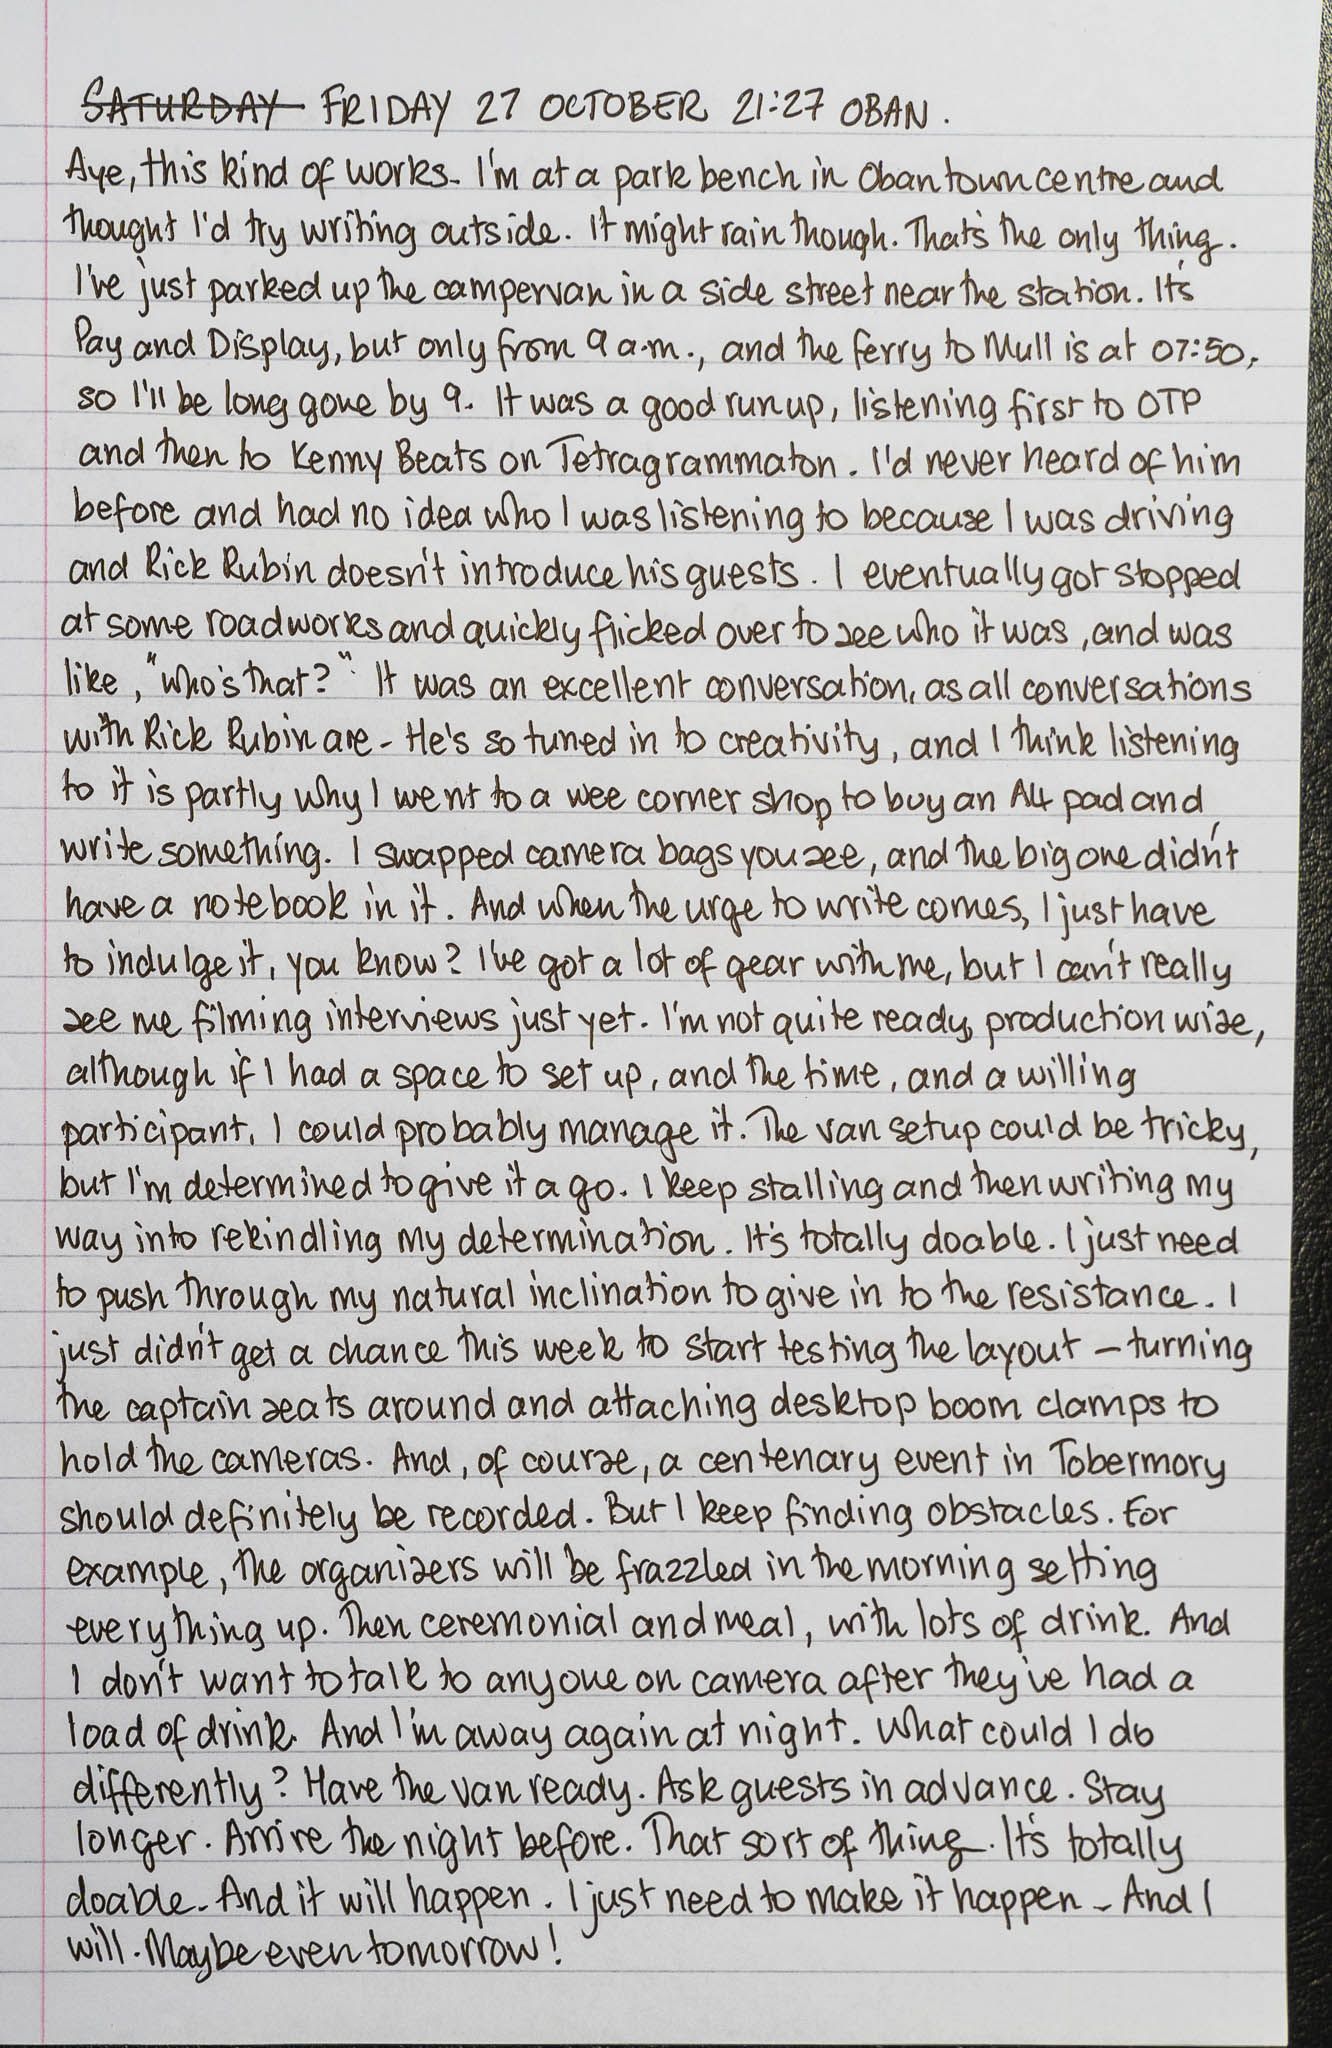 SATURDAY FRIDAY 27 OCTOBER 21:27 OBAN.
Aye, this kind of works. I'm at a park bench in Oban town centre and
thought I'd try writing outside. It might rain though. That's the only thing.
I've just parked up the campervan in a side street near the station. It's
Pay and Display, but only from 9 a.m., and the ferry to Mull is at 07:50,
so I'll be long gone by 9. It was a good run up, listening first to OTP
and then to Kenny Beats on Tetragrammaton. I'd never heard of him
before and had no idea who I was listening to because I was driving
and Rick Rubin doesn't introduce his guests. I eventually got stopped
at some roadworks and quickly flicked over to see who it was, and was
like, "who's that?" It was an excellent conversation, as all conversations
with Rick Rubin are. He's so tuned in to creativity, and I think listening
to it is partly why I went to a wee corner shop to buy an A4 pad and
write something. I swapped camera bags you see, and the big one didn't
have a notebook in it. And when the urge to write comes, I just have
to indulge it, you know? I've got a lot of gear with me, but I can't really
see me filming interviews just yet. I'm not quite ready, production wise,
although if I had a space to set up, and the time, and a willing
participant, I could probably manage it. The van setup could be tricky,
but I'm determined to give it a go. I keep stalling and then writing my
way into rekindling my determination. It's totally doable. I just need
to push through my natural inclination to give in to the resistance. I
just didn't get a chance this week to start testing the layout – turning
the captain seats around and attaching desktop boom clamps to
hold the cameras. And, of course, a centenary event in Tobermory
should definitely be recorded. But I keep finding obstacles. For
example, the organisers will be frazzled in the morning setting
everything up. Then ceremonial and meal, with lots of drink. And
I don't want to talk to anyone on camera after they've had a
load of drink. And I'm away again at night. What could I do
differently? Have the van ready. Ask guests in advance. Stay
longer. Arrive the night before. That sort of thing. It's totally
doable. And it will happen. I just need to make it happen. And I
will. Maybe even tomorrow!